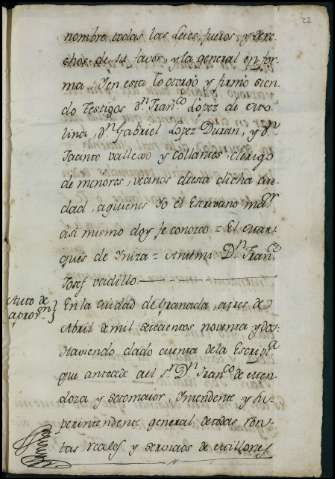 22
nombre todas las leies, fueros, y dere-
chos de su favor, y la general en for-
ma Y en esta lo otorgó y firmó sien-
do Testigos Dn. Franco. Lopez de
lina, Dn. Gabriel Lopez Duran, y Dn.
vallexo y Collantes clerigo
de menores, vecinos desta dicha ciu-
dad, aquienes Yo el Escrivano maor.
asi mismo doy fe conozco = El Marq-
ques de Iniza = Antemi Dn. Fran.co
Vadillo
Auto de
apron.
En la ciudad de Granada, a tres de
Abril de mil setecientos noventa y dos
Haviendo dado cuenta de la Escrip.ra
que antecede al Sr. Dn. Fran.co de Men-
doza y Sotomaior, Yntendente y Su-
perintendente general de todas Ren-
tas reales y servicios de Millones